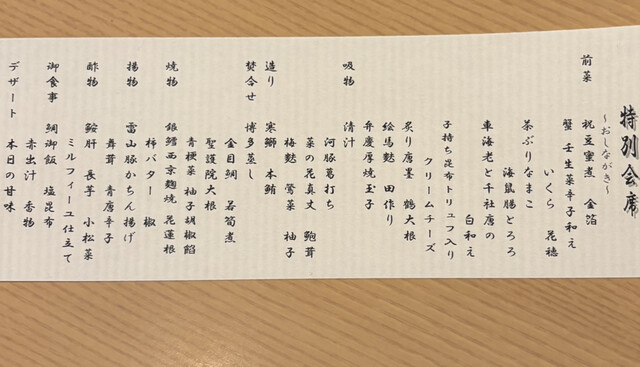 特別会席
～おしながき～
前菜
祝豆蜜煮 金箔
蟹 壬生菜辛子和え
いくら 花穂
茶ぶりなまこ
海鼠腸とろろ
車海老と千社唐の
白和え
子持ち昆布トリュフ入り
クリームチーズ
炙り唐墨 鶴大根
絵馬麩 田作り
弁慶厚焼玉子
吸物
清汁
河豚葛打ち
菜の花真丈 鮑茸
梅麩 鶯菜 柚子
造り
寒鰤 本鮪
焚合せ
博多蒸し
金目鯛 若筍煮
聖護院大根
青梗菜 柚子胡椒餡
焼物
銀鱈西京麹焼 花蓮根
柿バター 椒
揚物
雷山豚かちん揚げ
舞茸 青唐辛子
酢物
鮟肝 長芋 小松菜
ミルフィーユ仕立て
御食事
鯛御飯 塩昆布
赤出汁 香物
デザート
本日の甘味